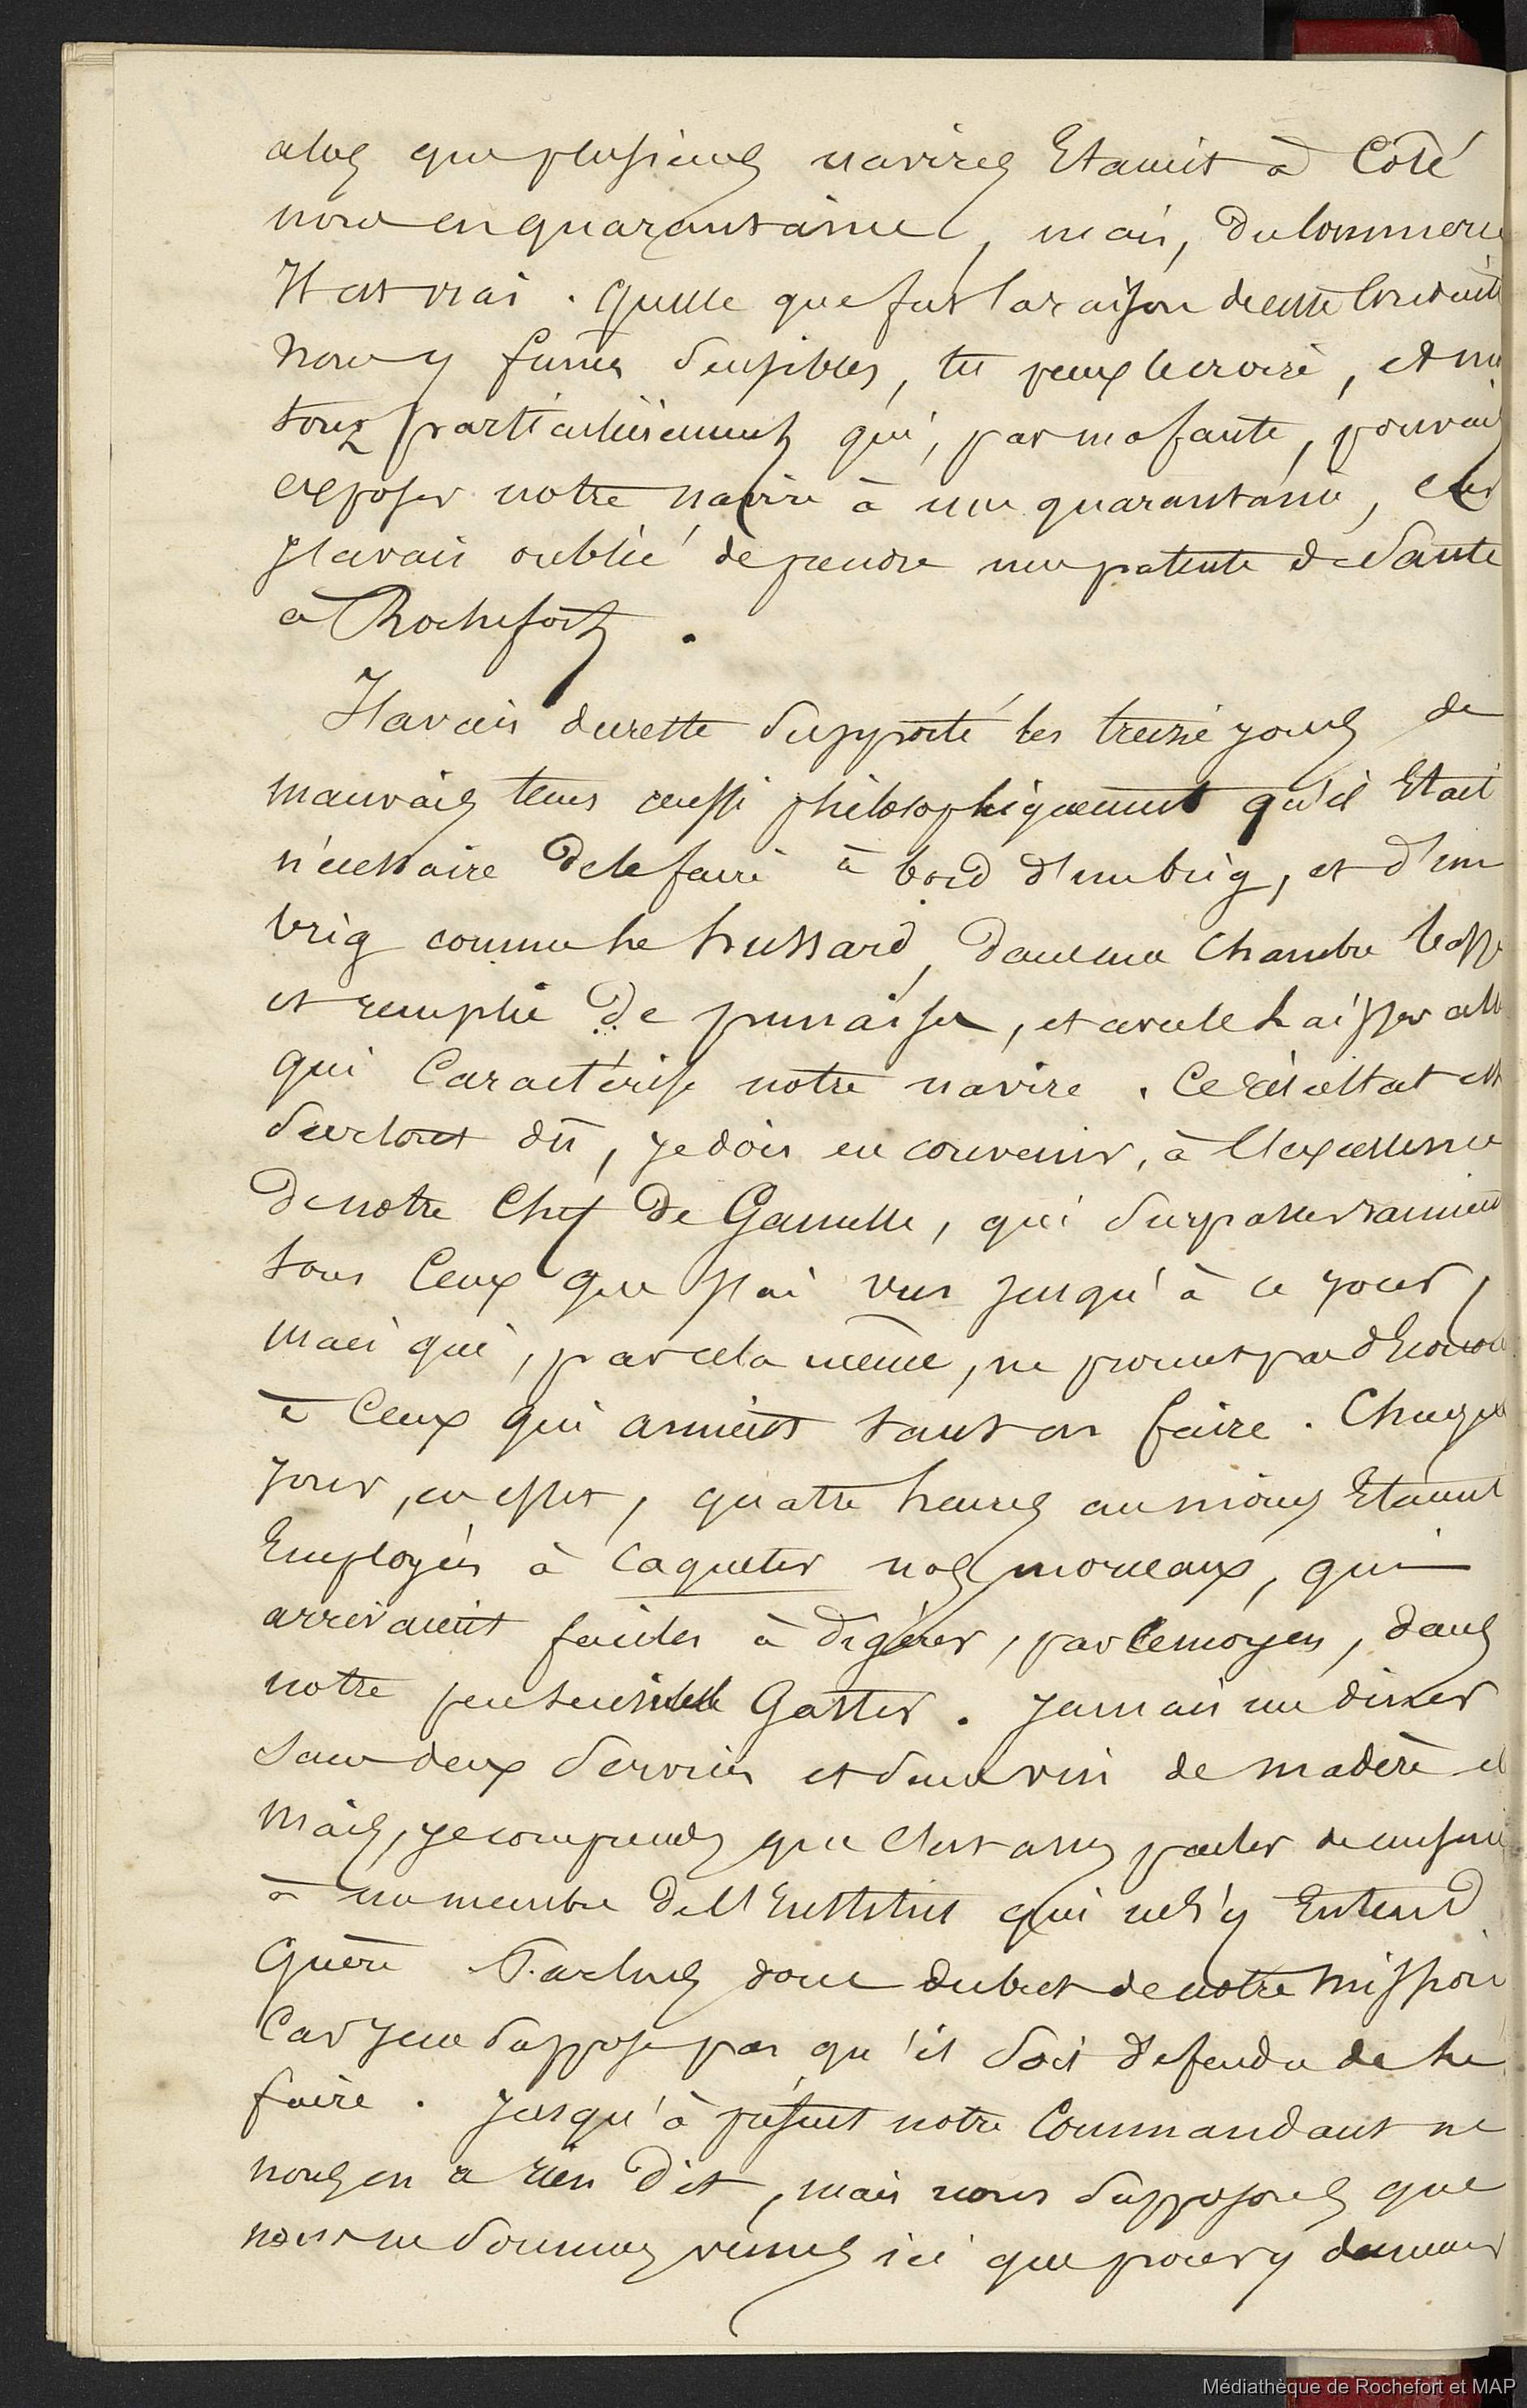 alors que plusieurs navires Etaient à Côté
nous en quarantaine, mais, du Commerce
Il est vrai. Quelle que fut la raison de cette Conduite
nous y fûmes sensibles, tu peux le croire, et moi
tout particulièrement qui, par ma faute, pouvais
exposer notre navire à une quarantaine, car
j'avais oublié de prendre une patente de Santé
à Rochefort.
J'avais du reste supporté les treize jours de
mauvais tems aussi philosophiquement qu'il Etait
nécessaire de le faire à bord d'un brig, et d'un
brig comme le hussard, dans une Chambre
et remplie de punaises, et avec le
qui Caractérise notre navire. Ce résultat est
surtout dû, je dois en convenir, à l'excellence
de notre Chef de Gamelle, qui surpasse vraiment
tous Ceux que j'ai vus jusqu'à ce jour,
mais qui, par cela même, ne promet pas d'Economies
à Ceux qui aiment tant en faire. Chaque
jour, en effet, quatre heures au moins Etaient
Employées à caqueter nos morceaux, qui
arrivaient faciles à digérer, par ce moyen, dans
notre Gaster. Jamais un diner
sans deux services et sans vin de madère et
Mais, je comprends que c'est assez parler de cuisine
à un membre de l'Institut qui ne s'y Entend
Guère Parlons donc du but de notre mission
Car je ne suppose pas qu'il soit défendu de le
faire. Jusqu'à présent notre Commandant ne
nous en a rien dit, mais nous supposons que
nous ne sommes venus ici que pour y